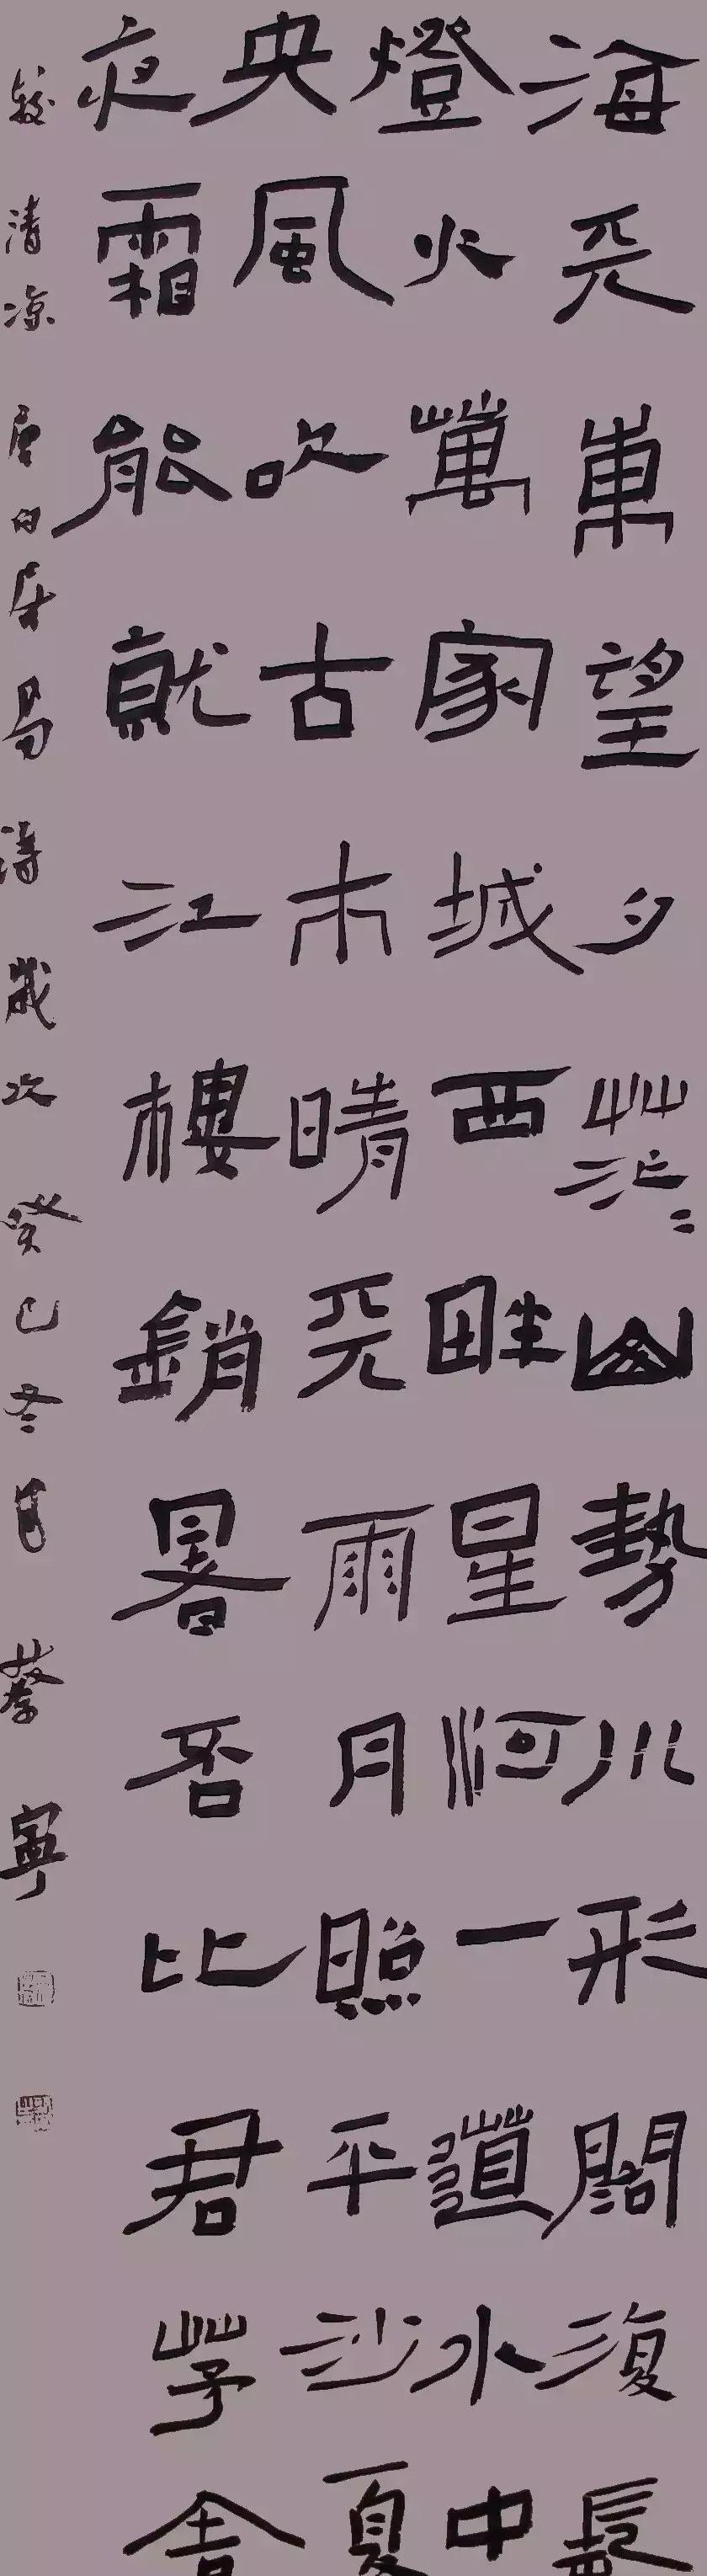 海天東望夕茫〻山勢川形闊復長
燈火萬家城西畔星河一道水中
央風吹古木晴天雨月照平沙夏
夜霜能就江樓銷暑否比君茅舍
較清凉唐白居易詩歲次癸巳冬月蔡寧